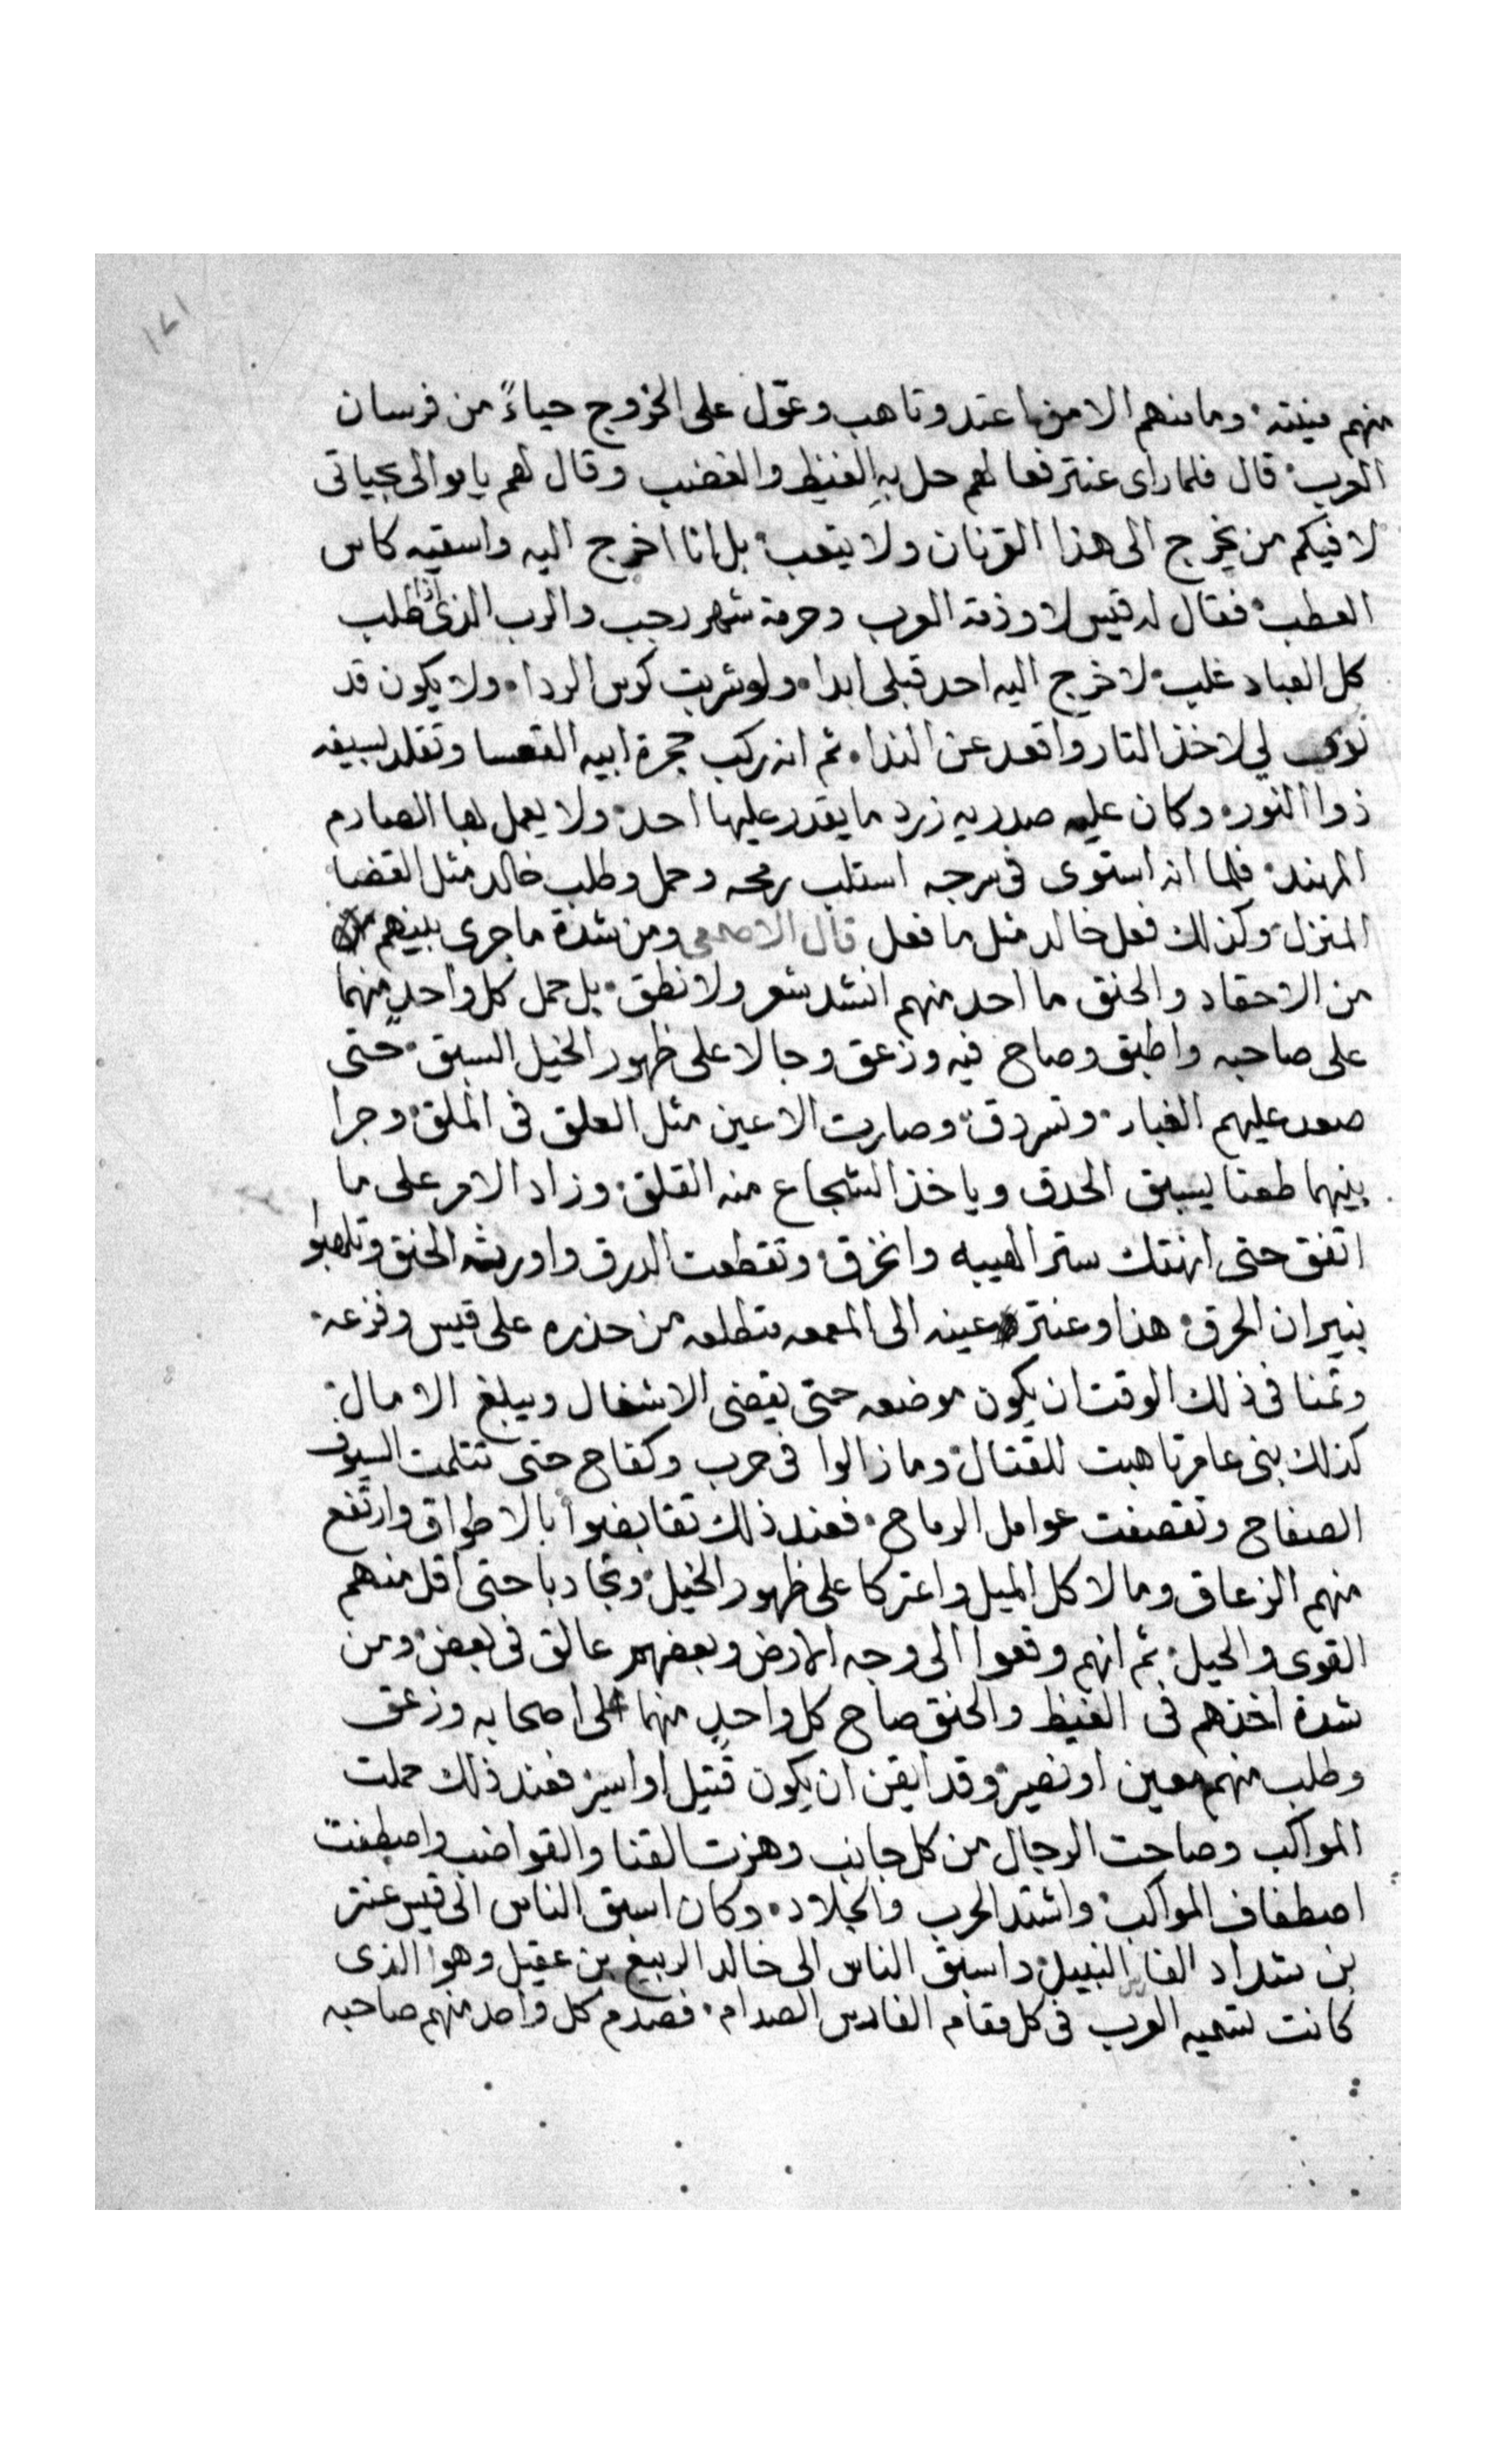 ١٧١
منهم منيته؛ وما منهم الا من اعتد وتاهب وعوّل على الخروج حياءً من فرسان
العرب؛ قال فلما راى عنتر فعالهم حل بهِ الغيظ والغضب وقال لهم يا موالى بحياتى
لا فيكم من يخرج الى هذا القرنان ولا يتعب؛ بل انا اخرج اليه واسقيه كاس
العطب؛ فقال له قيس لا وذمة العرب وحرمة شهر رجب والرب الذى اذا طلب
كل العباد غلب؛ لا خرج اليه احد قبلى ابدا، ولو شربت كوس الردا، ولا يكون قد
نودى لي لاخذ التار واقعد عن الندا، ثم انه ركب حجرة ابيه القعسا وتقلد بسيفه
ذوا النور؛ وكان عليه صدريه زرد ما يقدر عليها احد؛ ولا يعمل بها الصارم
المهند؛ فلما انه استوى فى سرجه استلب رمحه وحمل وطلب خالد مثل القضا
المنزل وكذلك فعل خالد مثل ما فعل قال الاصمعى ومن شدة ما جرى بينهم
من الاحقاد والحنق ما احد منهم انشد شعر ولا نطق؛ بل حمل كل واحدٍ منهما
على صاحبه واطبق وصاح فيه وزعق وجالا على ظهور الخيل السبق؛ حتى
صعد عليهم الغبار؛ وتسردق؛ وصارت الاعين مثل العلق فى الملق؛ وجرا
بينهما طعنا يسبق الحدق وياخذ الشجاع منه القلق؛ وزاد الامر على ما
اتفق حتى انهتك ستر الهيبه وانخرق؛ وتقطعت الدرق واورثه الحنق وتلهبوا
بنيران الحرق؛ هذا وعنتر عينه الى المعمعه متطلعه من حذره على قيس وفزعه،
وتمنا فى ذلك الوقت ان يكون موضعه حتى يقضى الاشغال ويبلغ الامال؛
كذلك بنى عامر تاهبت للقتال؛ وما زالوا فى حرب وكفاح حتى تثلمت السيوف
الصفاح وتقصفت عوامل الرماح، فعند ذلك تقابضوا بالاطواق وارتفع
منهم الزعاق ومالا كل الميل واعتركا على ظهور الخيل؛ وتجاذبا حتى اقل منهم
القوى والحيل؛ ثم انهم وقعوا الى وجه الارض وبعضهم عالق فى بعض؛ ومن
شدة اخذهم فى الغيظ والحنق صاح كل واحدٍ منهما على اصحابه وزعق
وطلب منهم معين او نصير؛ وقد ايقن ان يكون قتيل او اسير فعند ذلك حملت
المواكب وصاحت الرجال من كل جانب وهزت القنا والقواضب واصطفت
اصطفاف المواكب؛ واشتد الحرب والجلاد، وكان اسبق الناس الى قيس عنتر
بن شداد الفارس النبيل؛ واسبق الناس الى خالد الربيع بن عقيل وهوا الذى
كانت تسميه العرب فى كل مقام الفارس الصدام، فصدم كل واحد منهم صاحبه